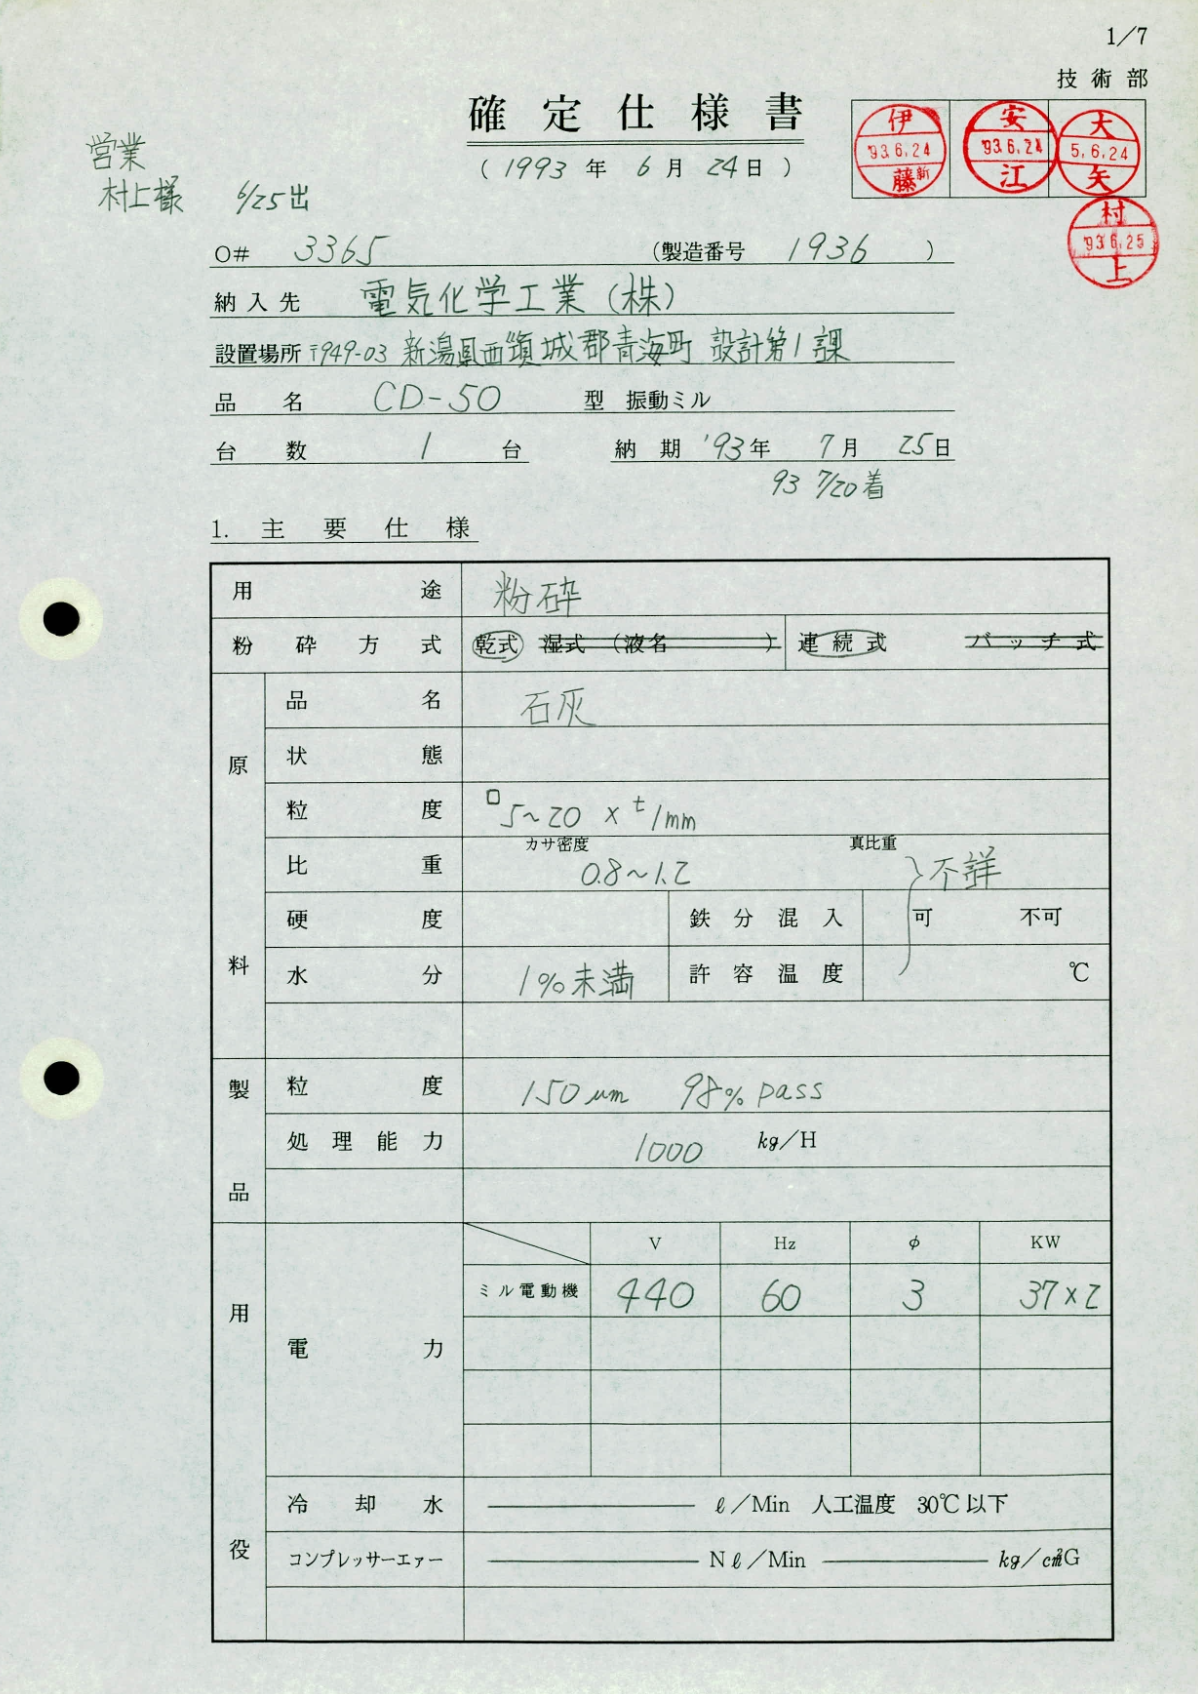 1/7
技術部
確定仕様書
(1993年 6月 24日)
伊 93.6.24 藤 新
安 93.6.24 江
大 5.6.24 矢
村 93.6.25 上
営業
村上様 6/25出
O# 3365 (製造番号 1936 )
納入先 電気化学工業(株)
設置場所 〒949-03 新潟県西頸城郡青海町 設計第1課
品名 CD-50 型 振動ミル
台数 1 台 納期 '93年 7月 25日
93 7/20着
1. 主要仕様
用途 粉砕
粉砕方式 乾式 湿式 (液名 ) 連続式 バッチ式
原料
品名 石灰
状態
粒度 □5~20 × t1mm
比重 カサ密度 0.8~1.2 真比重 不詳
硬度 鉄分混入 可 不可
水分 1%未満 許容温度 ℃
製品
粒度 150μm 98% pass
処理能力 1000 kg/H
用役
電力 V Hz φ KW
ミル電動機 440 60 3 37×2
冷却水 ℓ/Min 人工温度 30℃以下
コンプレッサーエァー Nℓ/Min kg/c㎡G